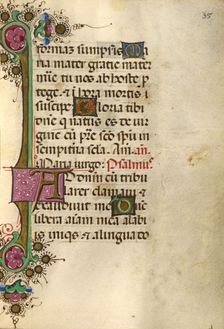 35
formam sumpsis. Ma
ria mater gratie mater
mie tu nos ab hoste p
tege et hora mortis
suscipe. Gloria tibi
dne qui natus es de vir
gine cu pre sco spu in
sempitna scla. Am. an.
Maria virgo. Psalmus
Ad dnm cu tribu
larer clamaui et
exaudiuit me. Dne
libera aiam mea a labi
is iniqis et a lingua do